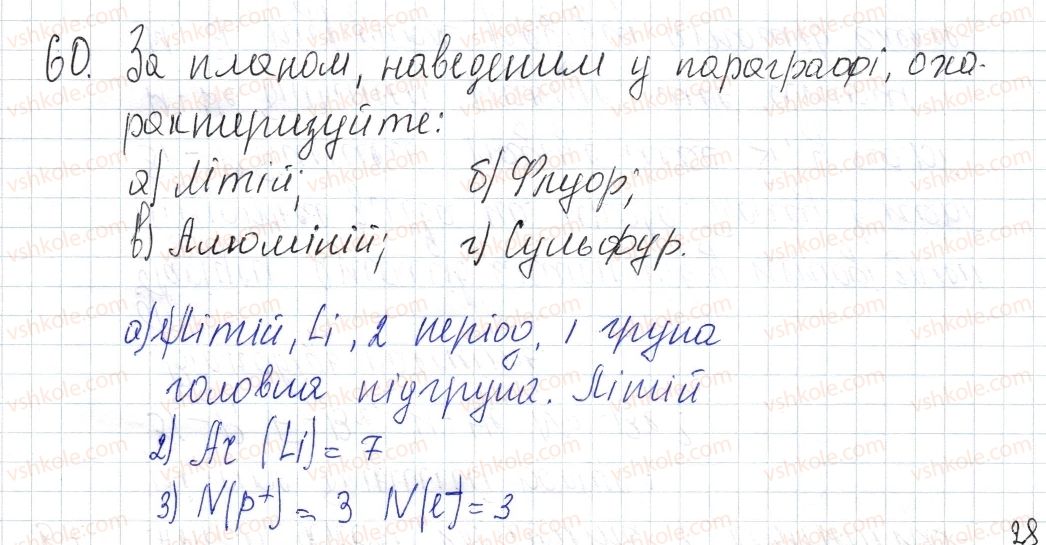 60. За планом, наведеним у параграфі, оха-
рактеризуйте:
а) Літій; б) Флуор;
в) Алюміній; г) Сульфур.
а) 1) Літій, Li, 2 період, 1 група
головна підгрупа. Літій
2) Ar (Li) = 7
3) N(p+) = 3 N(e-) = 3
28